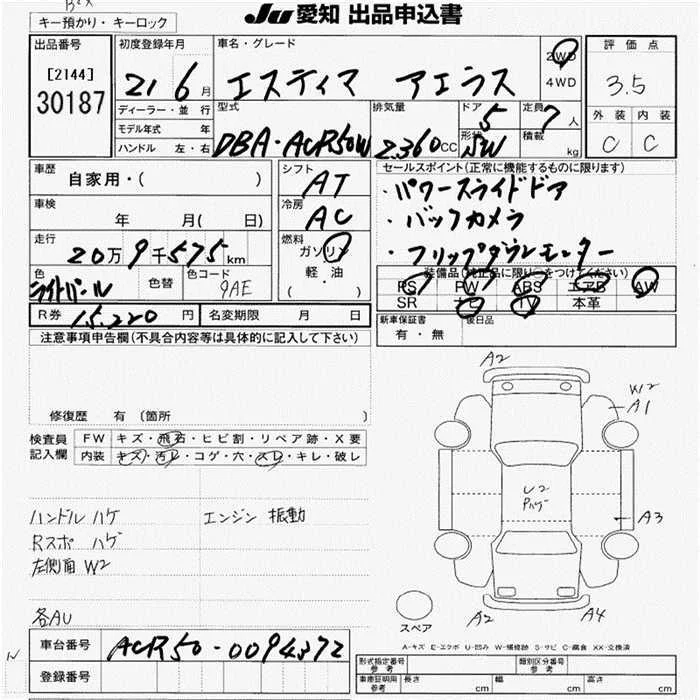 JU 愛知 出品申込書
キー預かり・キーロック
出品番号
[2144]
30187
初度登録年月
21 6月
車名・グレード
エスティマ アエラス
2WD
4WD
評価点
3.5
外装 内装
C C
ディーラー・並行
モデル年式 年
ハンドル 左・右
型式
DBA-ACR50W
排気量
2.360CC
ドア
5
形状
SW
定員
7人
積載
kg
車歴
自家用・( )
車検
年 月( 日)
走行
20万9千575km
色
ライトパール
色替
色コード
9AE
シフト
AT
冷房
AC
燃料
ガソリン
軽・油
( )
セールスポイント(正常に機能するものに限ります)
・パワースライドドア
・バックカメラ
・フリップダウンモニター
装備品(純正品に限り○をつけてください)
PS PW ABS エアB AW
SR ナビ TV 本革
R券 15.220円 名変期限 月 日
新車保証書
有・無
後日品
注意事項申告欄(不具合内容等は具体的に記入して下さい)
修復歴 有(箇所 )
検査員
記入欄
FW キズ・飛石・ヒビ割・リペア跡・X要
内装 キズ・汚レ・コゲ・穴・スレ・キレ・破レ
ハンドル ハゲ
エンジン 振動
Rスポ ハゲ
左側面 W2
各AU
A2
W2
A1
U2
Pハゲ
A3
A2
A4
スペア
A-キズ E-エクボ U-凹み W-補修跡 S-サビ C-腐食 XX-交換済
車台番号 ACR50-0094372
登録番号
形式指定番号
参考
類別区分番号
参考
車庫証明用
参考
長さ cm 幅 cm 高さ cm